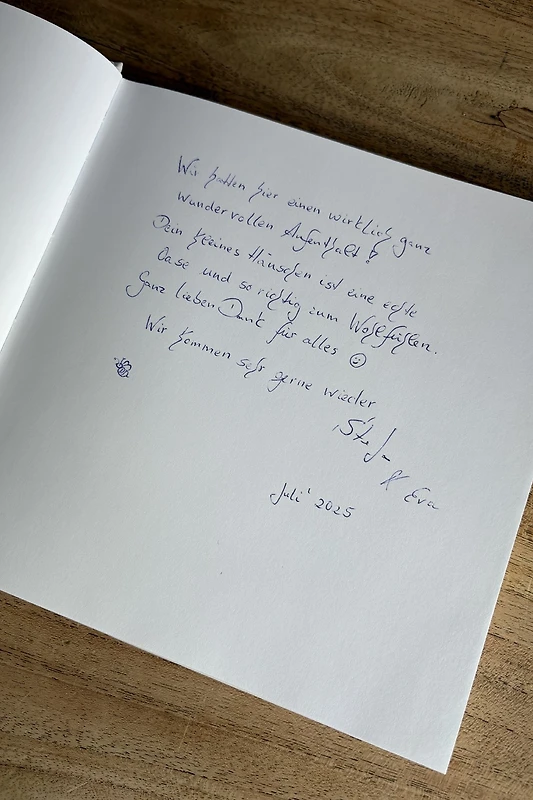 Wir hatten hier einen wirklich ganz
wundervollen Aufenthalt!
Dein kleines Häuschen ist eine echte
Oase und so richtig zum Wohlfühlen.
Ganz lieben Dank für alles ☺
Wir kommen sehr gerne wieder
& Eva
Juli' 2025